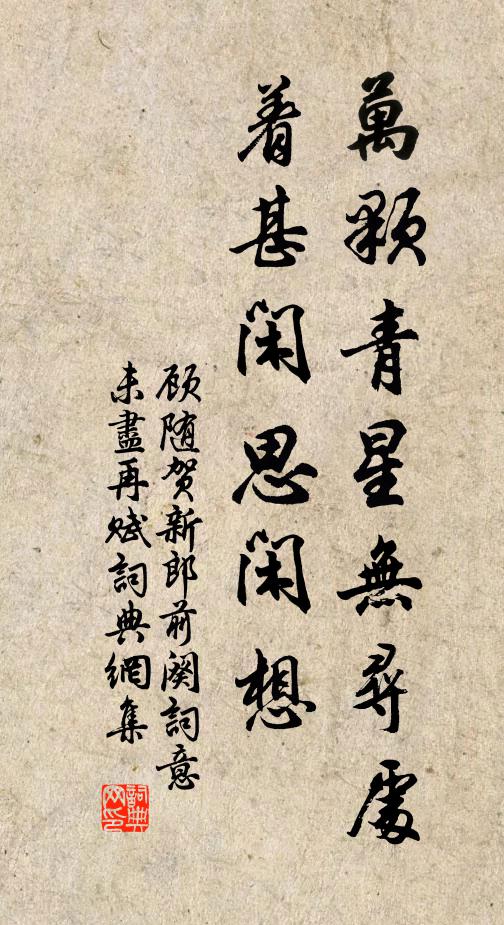 萬顆青星無尋處
着甚閑思閑想
顾随贺新郎前闋詞意
未盡再赋詞典網集
詞典
网印